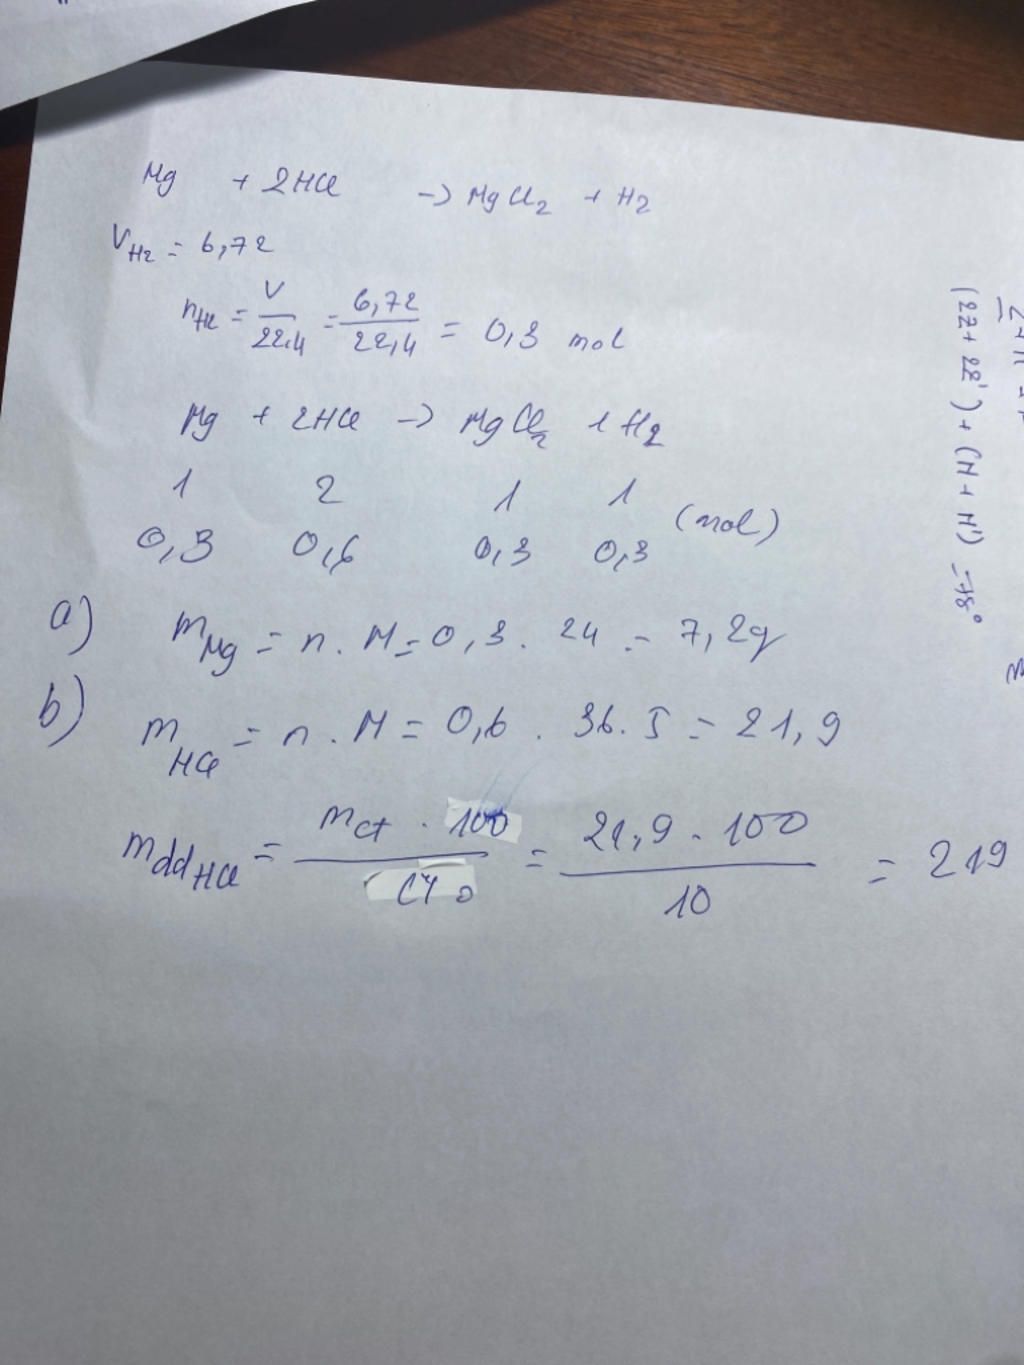 Mg + 2HCl -> MgCl2 + H2
VH2 = 6,72
nH2 = V/22,4 = 6,72/22,4 = 0,3 mol
Mg + 2HCl -> MgCl2 + H2
1 2 1 1 (mol)
0,3 0,6 0,3 0,3
a) mMg = n . M = 0,3 . 24 = 7,2g
b) mHCl = n . M = 0,6 . 36.5 = 21,9
mddHCl = mct . 100 / C% = 21,9 . 100 / 10 = 219
(2Z + 2Z') + (N + N') = 78